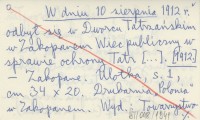 W dniu 10 sierpnia 1912 r.
odbył się w Dworcu Tatrzańskim
w Zakopanem Wiec publiczny w
sprawie ochrony Tatr [...]. [1912]
- Zakopane. Ulotka, s. 1,
cm 34 x 20. Drukarnia Polonia
w Zakopanem. Wyd. Towarzystwo